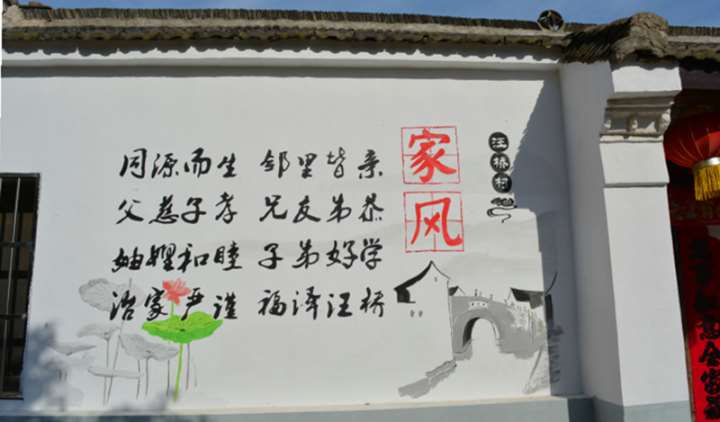 汪桥村
家风
同源而生 邻里皆亲
父慈子孝 兄友弟恭
妯娌和睦 子弟好学
治家严谨 福泽汪桥